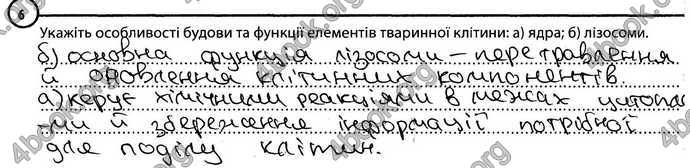 6
Укажіть особливості будови та функції елементів тваринної клітини: а) ядра; б) лізосоми.
б) основна функція лізосоми – перетравлення
й оновлення клітинних компонентів.
а) керує хімічними реакціями в межах цитопла-
зми й збереження інформації потрібної
для поділу клітин.